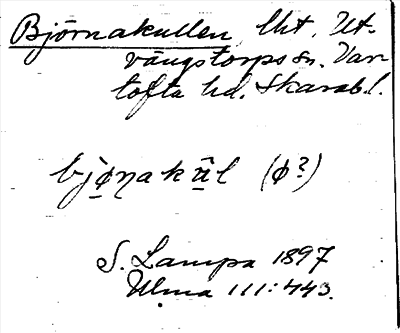 Björnakullen, lht, Ut-
vängstorps sn. Var-
tofta hd. Skarab. l.
bjø̀ṇakū̲l (ø?)
S. Lampa 1897
Ulma 111:443.